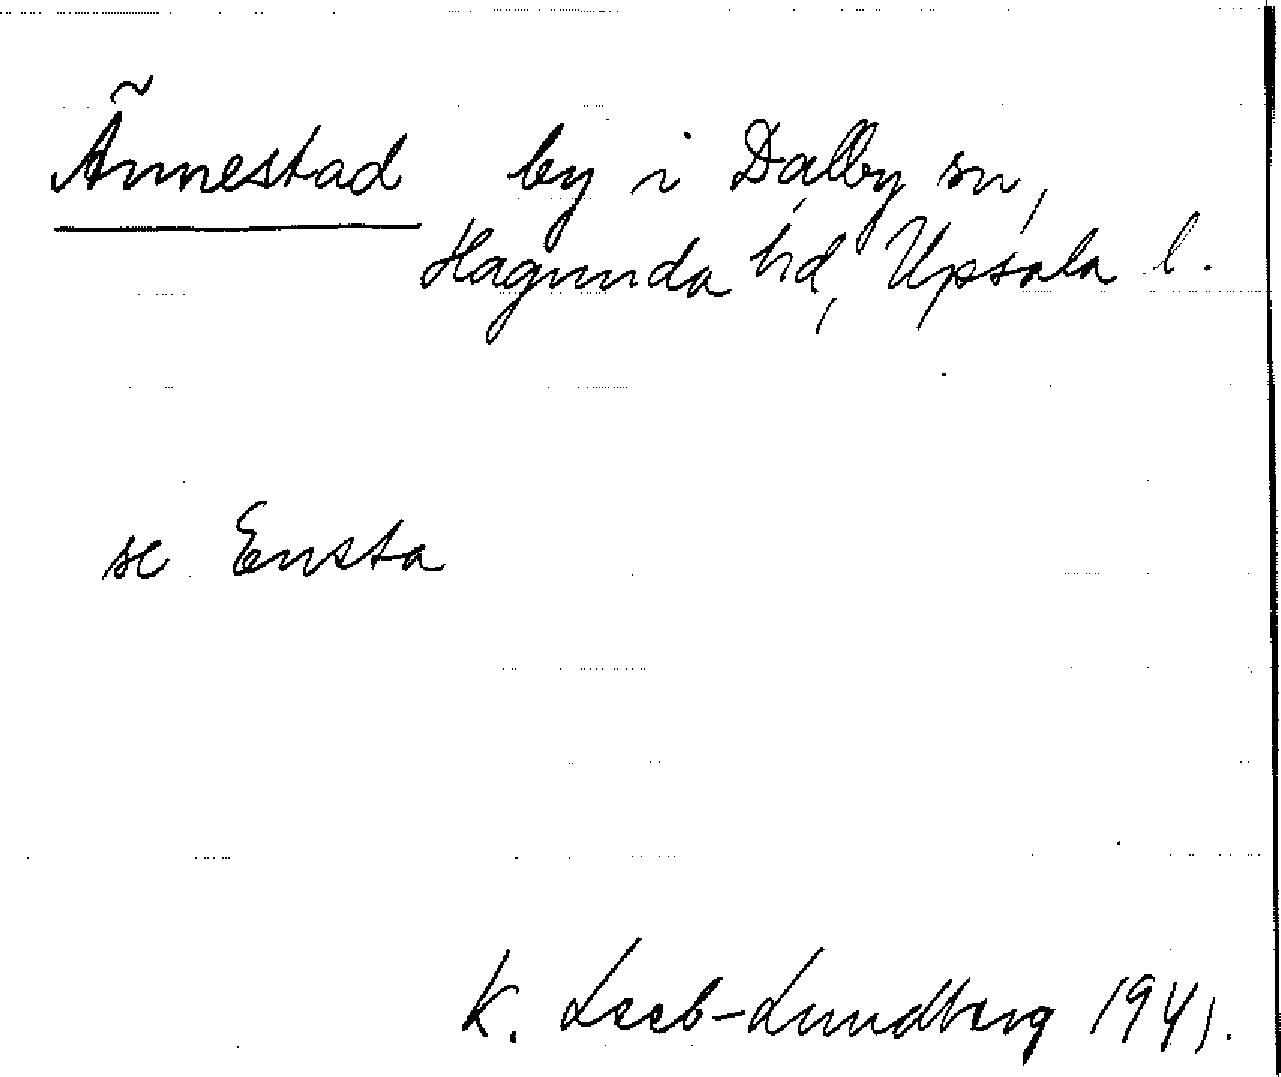 Ännestad by i Dalby sn,
Hagunda hd, Upsala l.
se Ensta
K. Leeb-Lundberg 1941.